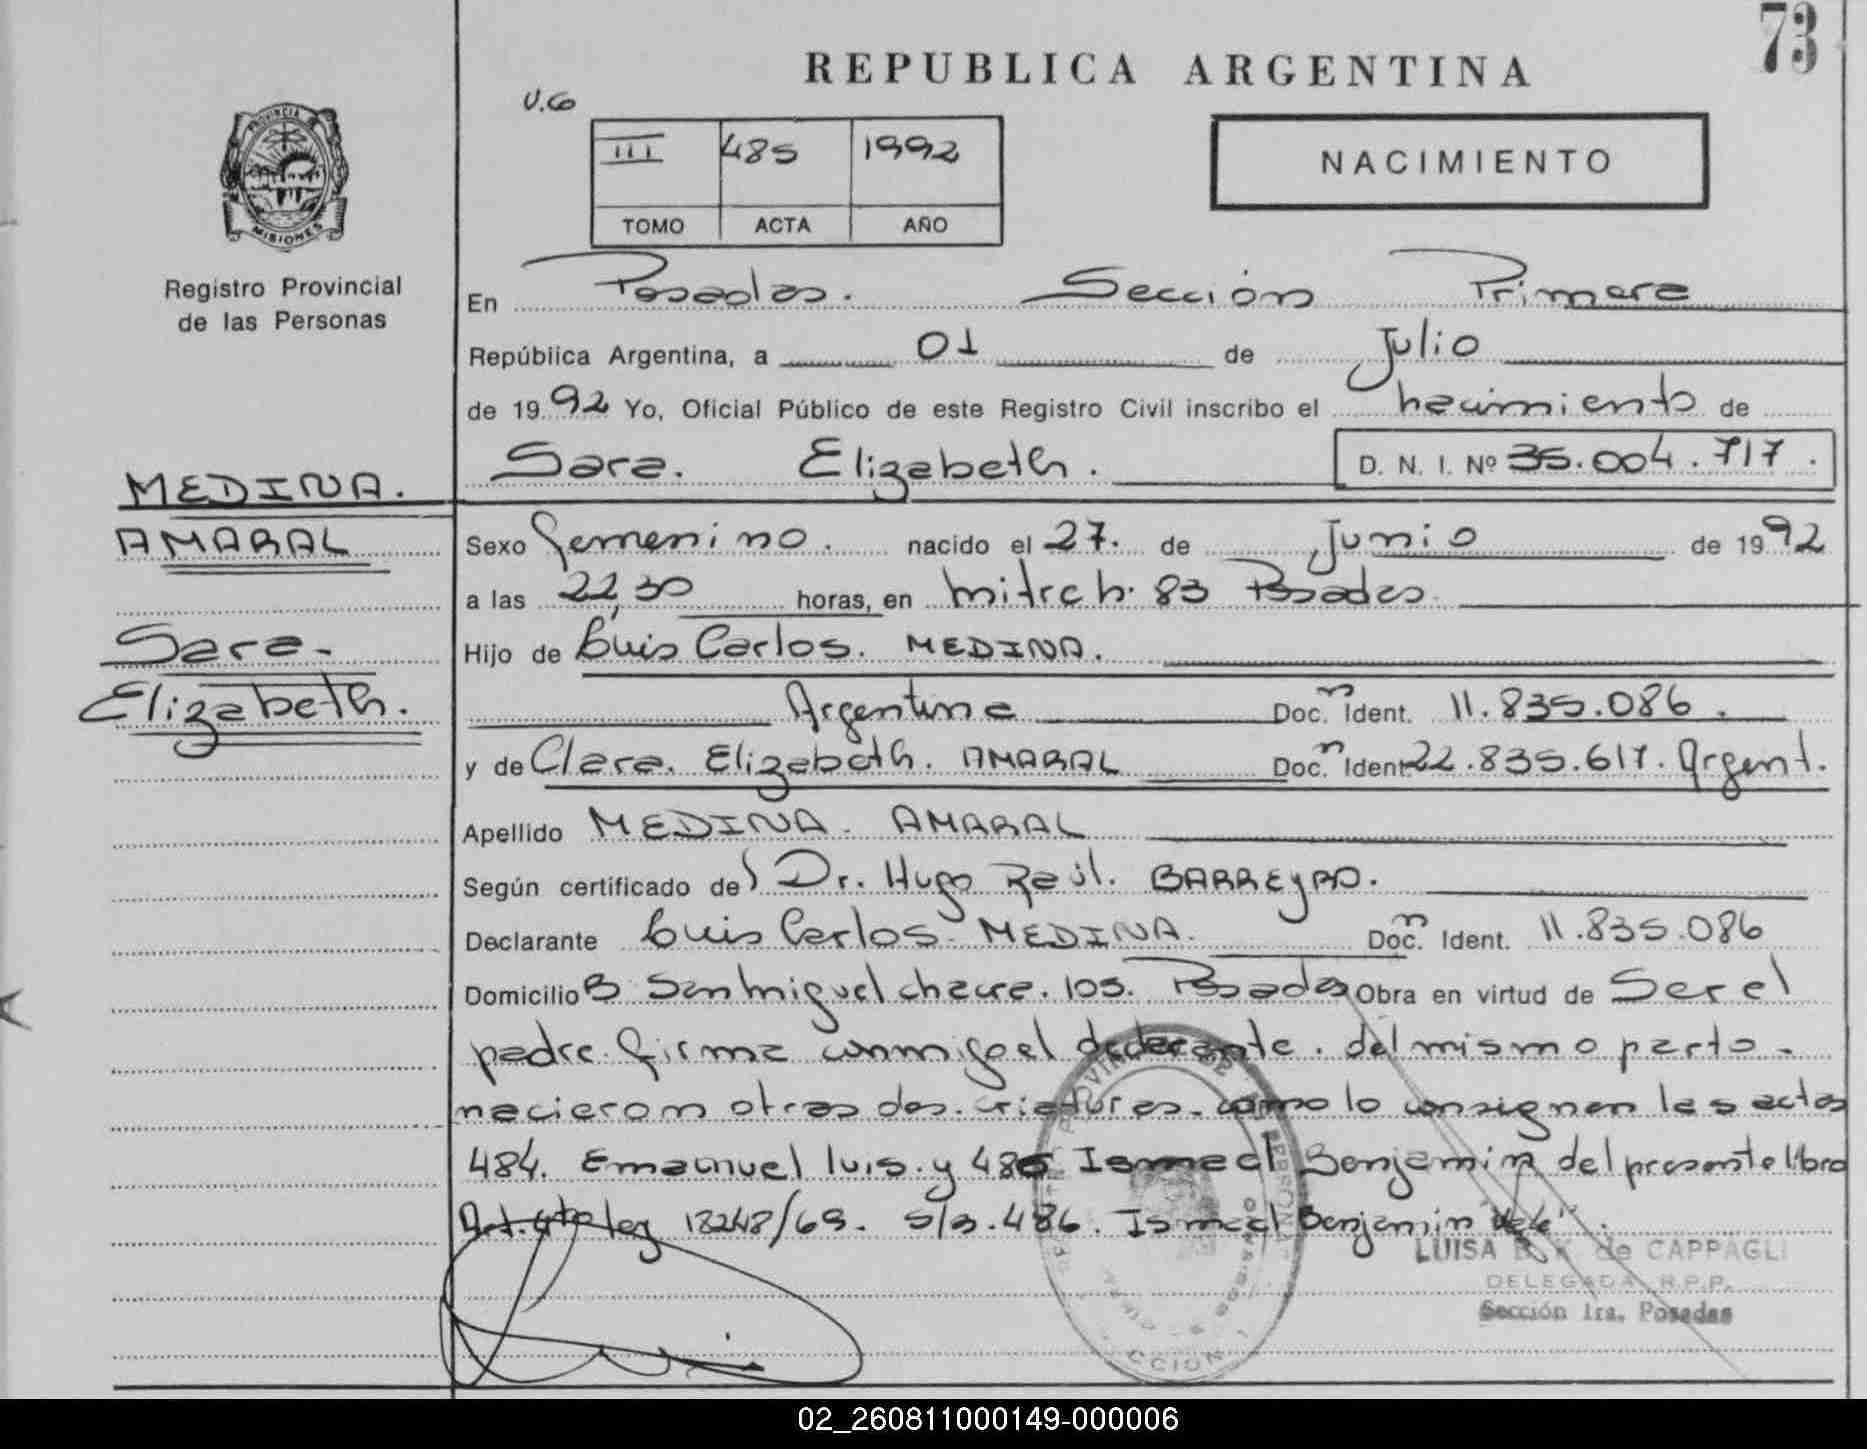 73
REPUBLICA ARGENTINA
V.Co
III 485 1992
TOMO ACTA AÑO
NACIMIENTO
PROVINCIA DE MISIONES
Registro Provincial
de las Personas
En Posadas. Sección Primera
República Argentina, a 01 de Julio
de 1992 Yo, Oficial Público de este Registro Civil inscribo el nacimiento de
Sara. Elizabeth. D. N. I. Nº 35.004.717.
MEDINA.
AMARAL
Sara.
Elizabeth.
Sexo femenino. nacido el 27. de Junio de 1992
a las 22,30 horas, en Mitre h. 83 Posadas
Hijo de Luis Carlos. MEDINA.
Argentina Doc. Ident. 11.835.086.
y de Clara. Elizabeth. AMARAL Doc. Ident 22.835.617. Argent.
Apellido MEDINA. AMARAL
Según certificado del Dr. Hugo Raúl. BARREYRO.
Declarante Luis Carlos MEDINA. Doc. Ident. 11.835.086
Domicilio B San Miguel chacra. 105. Posadas Obra en virtud de Ser el
padre. firma conmigo el declarante. del mismo parto.
nacieron otras dos. criaturas. como lo consignan las actas
484. Emanuel luis. y 486 Ismael Benjamin del presente libro
Art. 4to ley 18248/69. S/a. 486. Ismael Benjamin "Vale".
LUISA B. K de CAPPAGLI
DELEGADA R.P.P.
Sección 1ra. Posadas
02_260811000149-000006